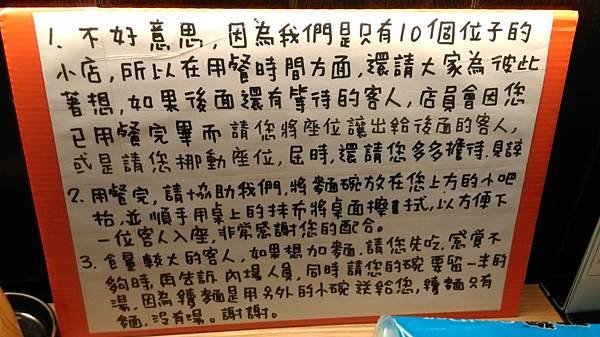 1. 不好意思,因為我們是只有10個位子的
小店,所以在用餐時間方面,還請大家為彼此
著想,如果後面還有等待的客人,店員會因您
已用餐完畢而請您將座位讓出給後面的客人,
或是請您挪動座位,屆時,還請您多多擔待.見諒
2. 用餐完,請協助我們,將麵碗放在您上方的小吧
枱,並順手用桌上的抹布將桌面擦拭,以方便下
一位客人入座,非常感謝您的配合。
3. 食量較大的客人,如果想加麵,請您先吃,感覺不
夠時,再告訴內場人員,同時請您的碗要留一半的
湯,因為續麵是用另外的小碗送給您,續麵只有
麵,沒有湯。謝謝。